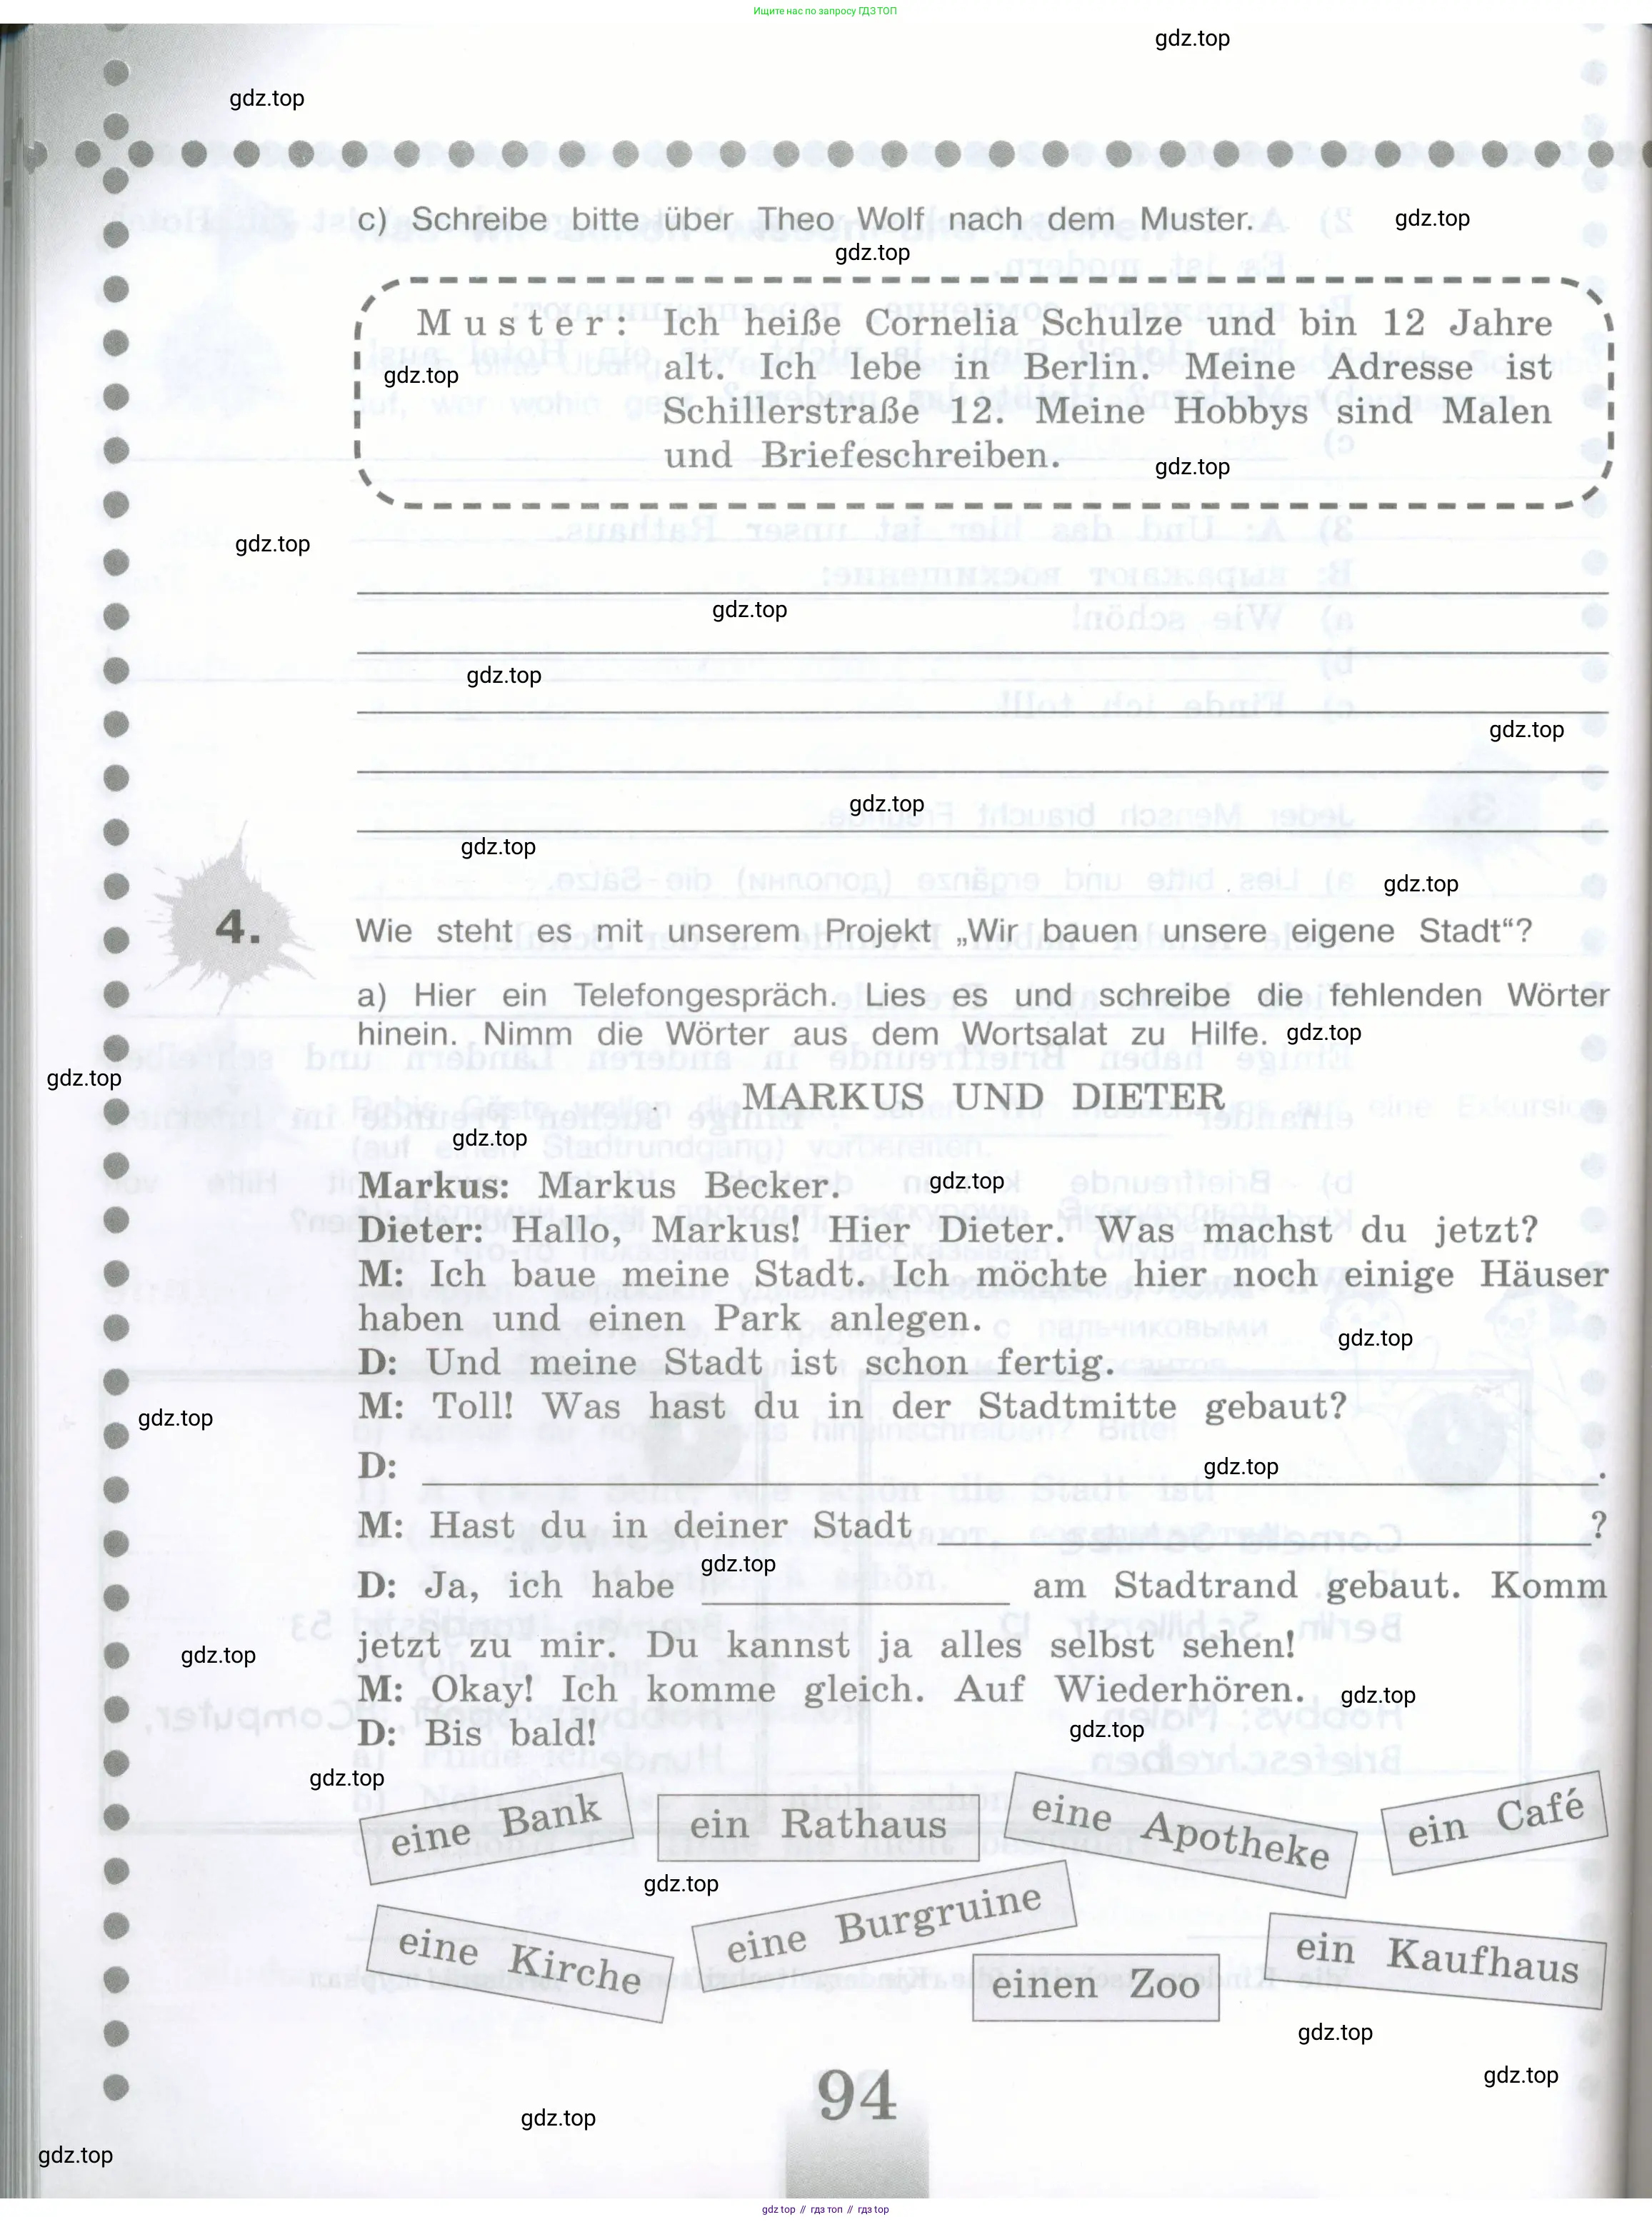 Ищите нас по запросу ГДЗ ТОП
gdz.top
gdz.top
c) Schreibe bitte über Theo Wolf nach dem Muster.
gdz.top
gdz.top
Muster: Ich heiße Cornelia Schulze und bin 12 Jahre
alt. Ich lebe in Berlin. Meine Adresse ist
gdz.top
Schillerstraße 12. Meine Hobbys sind Malen
und Briefeschreiben.
gdz.top
gdz.top
gdz.top
gdz.top
gdz.top
gdz.top
gdz.top
gdz.top
4. Wie steht es mit unserem Projekt „Wir bauen unsere eigene Stadt“?
a) Hier ein Telefongespräch. Lies es und schreibe die fehlenden Wörter
hinein. Nimm die Wörter aus dem Wortsalat zu Hilfe.
gdz.top
gdz.top
MARKUS UND DIETER
gdz.top
Markus: Markus Becker.
gdz.top
Dieter: Hallo, Markus! Hier Dieter. Was machst du jetzt?
M: Ich baue meine Stadt. Ich möchte hier noch einige Häuser
haben und einen Park anlegen.
gdz.top
D: Und meine Stadt ist schon fertig.
M: Toll! Was hast du in der Stadtmitte gebaut?
gdz.top
D: .
gdz.top
M: Hast du in deiner Stadt ?
gdz.top
D: Ja, ich habe am Stadtrand gebaut. Komm
jetzt zu mir. Du kannst ja alles selbst sehen!
gdz.top
M: Okay! Ich komme gleich. Auf Wiederhören.
gdz.top
D: Bis bald!
gdz.top
gdz.top
eine Bank
ein Rathaus
eine Apotheke
ein Café
gdz.top
eine Kirche
eine Burgruine
einen Zoo
ein Kaufhaus
gdz.top
gdz.top
94
gdz.top
gdz.top
gdz top // гдз топ // гдз top